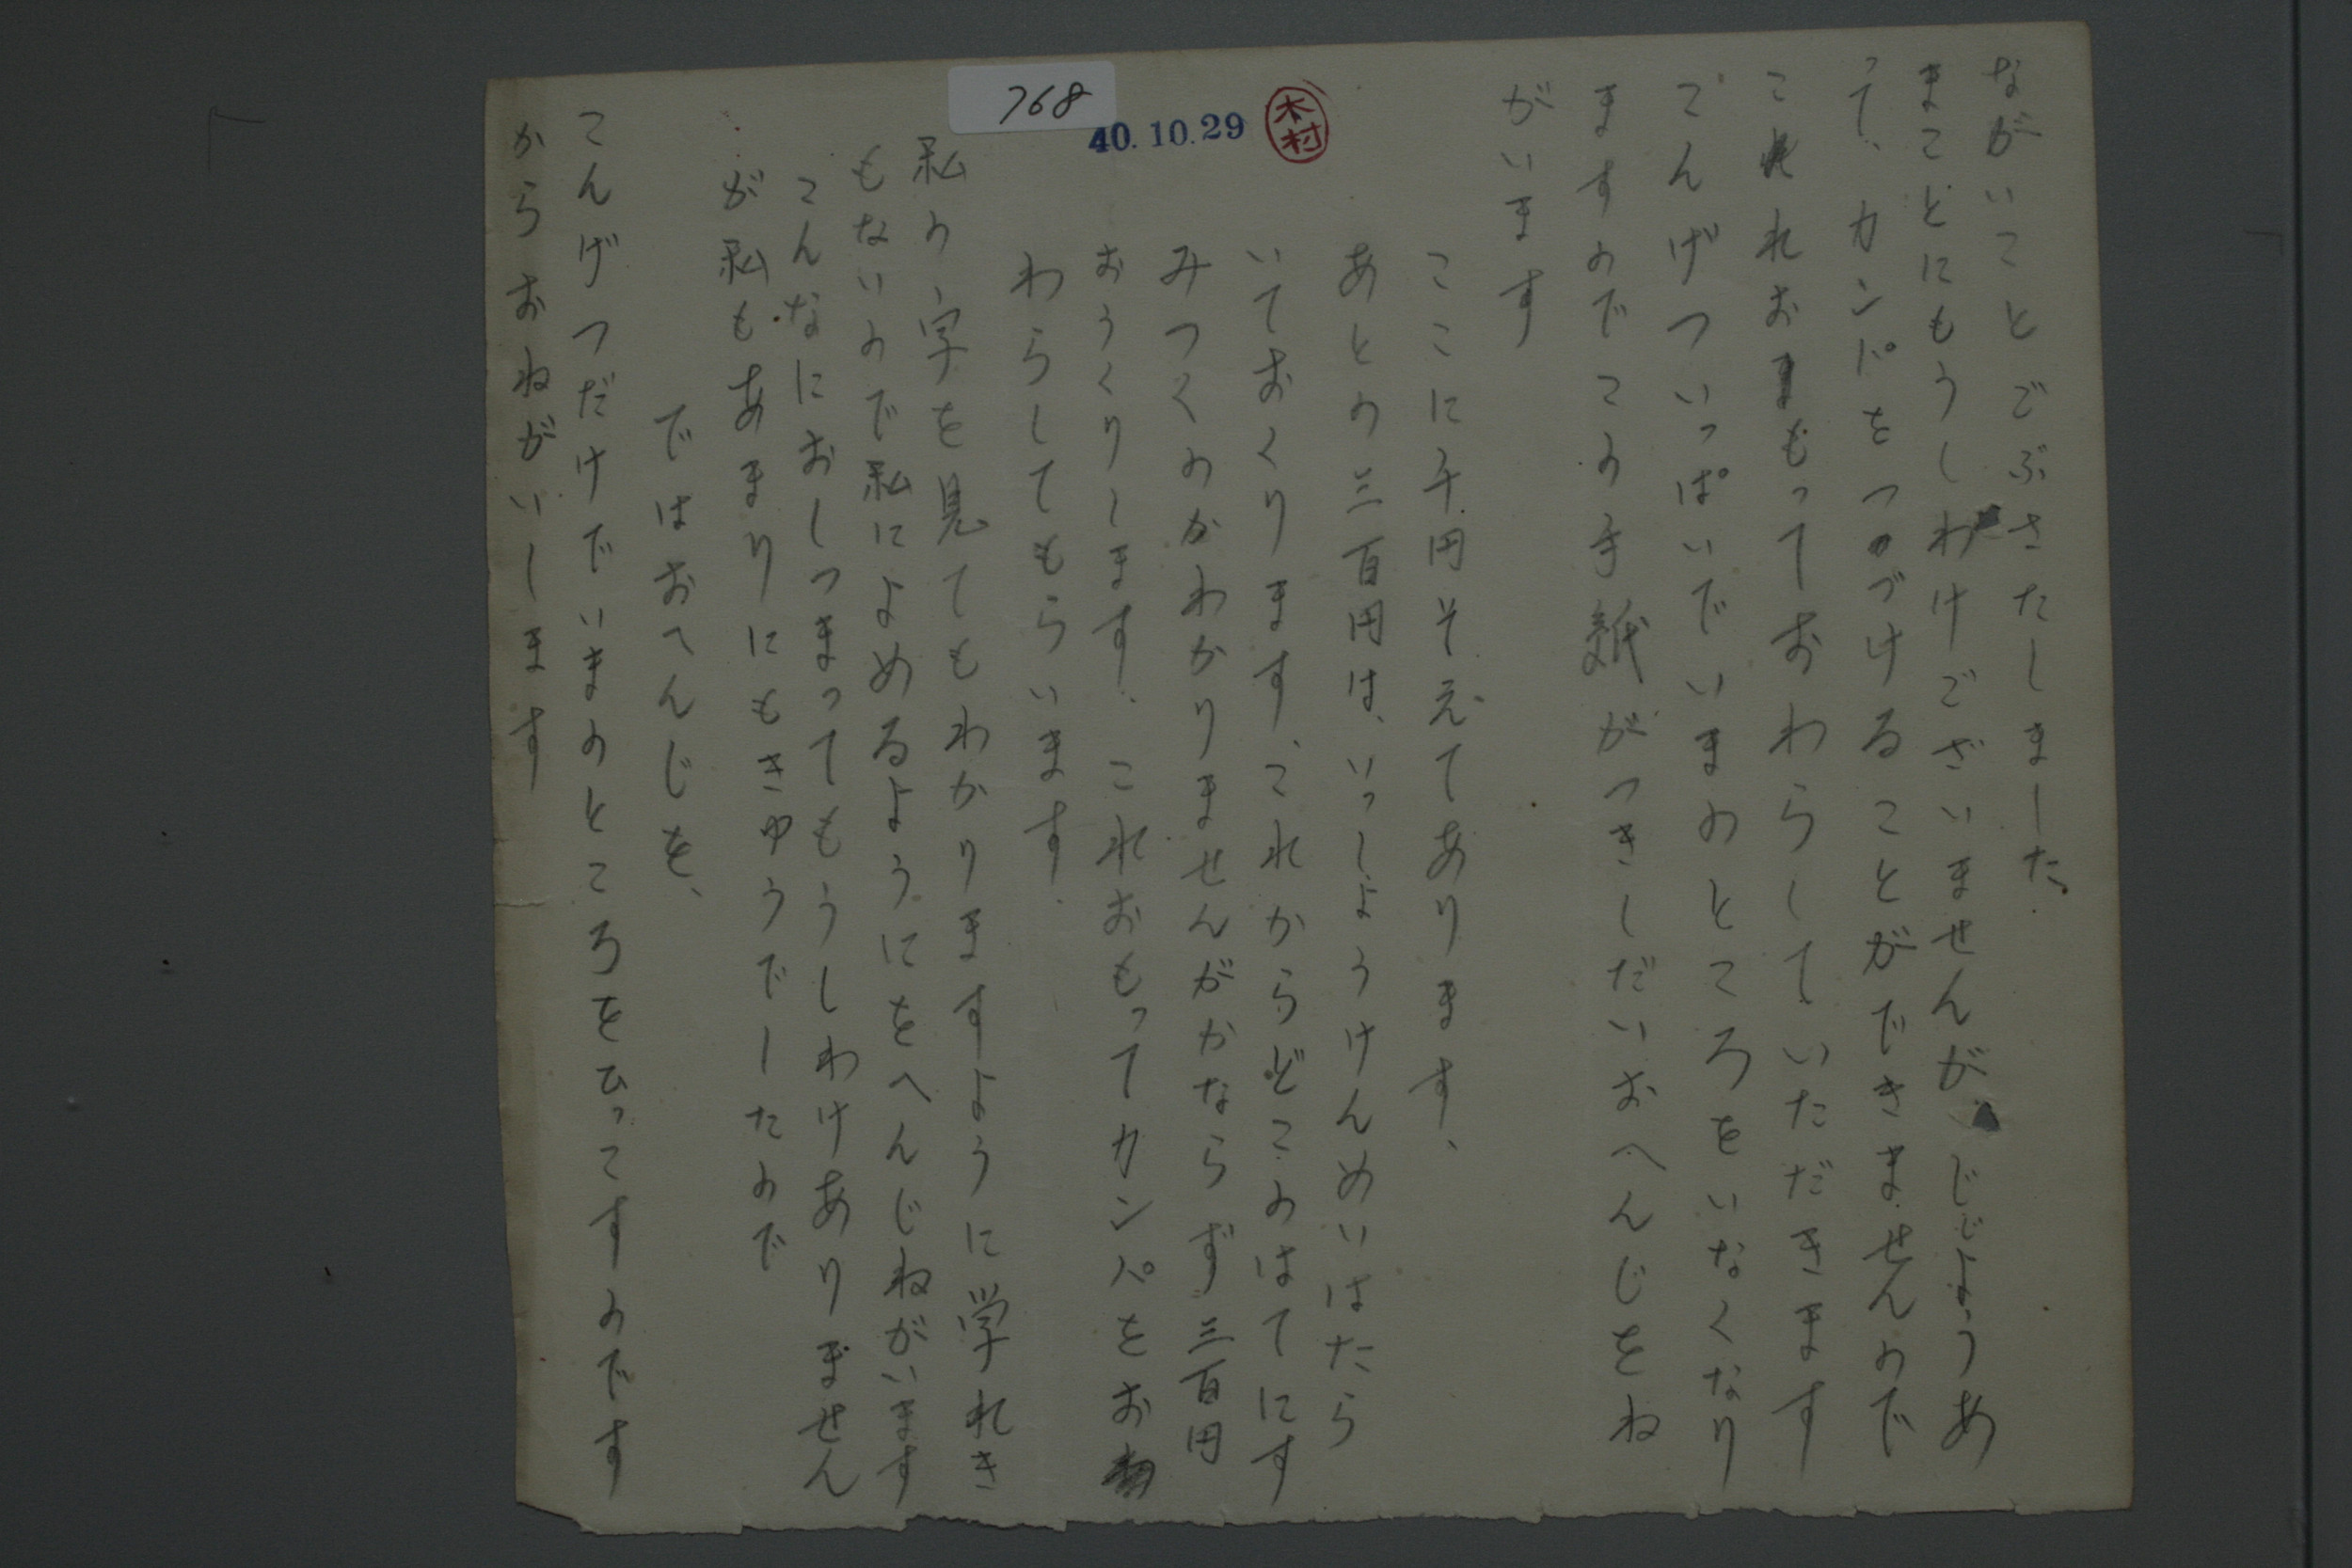 768
40.10.29
木村
ながいことごぶさたしました。
まことにもうしわけございませんが、じじようあ
って、カンパをつづけることができませんので
これおもっておわらしていただきます
こんげついっぱいでいまのところをいなくなり
ますのでこの手紙がつきしだいおへんじをね
がいます
ここに千円そえてあります、
あとの三百円は、いっしようけんめいはたら
いておくります、これからどこのはてにす
みつくのかわかりませんがかならず三百円
おうくりします、これおもってカンパをお
わらしてもらいます.
私の字を見てもわかりますように学れき
もないので私によめるようにをへんじねがいます
こんなにおしつまってもうしわけありません
が私もあまりにもきゆうでしたので
ではおへんじを、
こんげつだけでいまのところをひっこすのです
からおねがいします